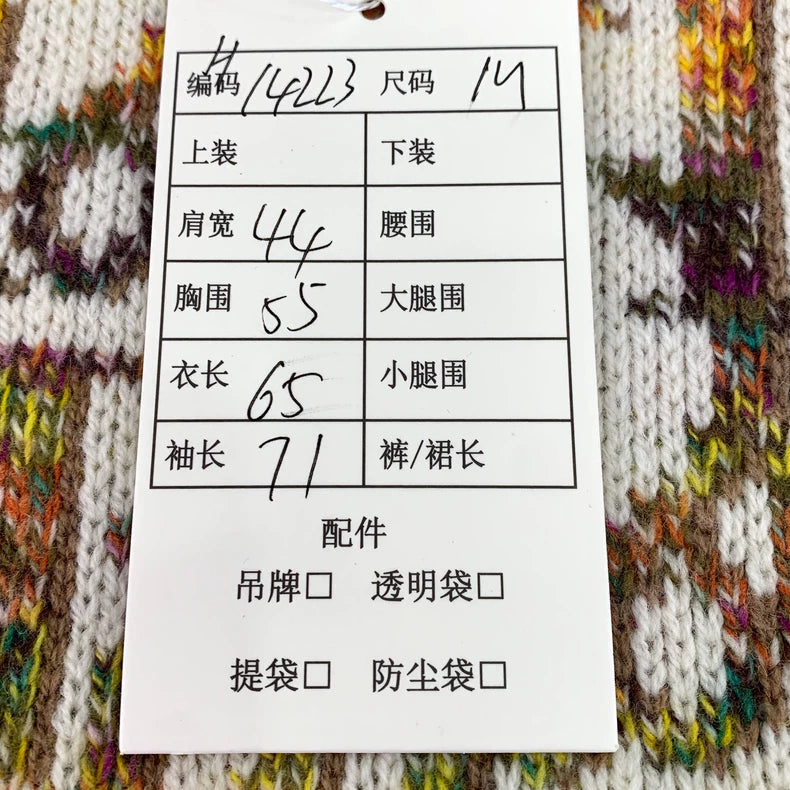 编码 H14223 尺码 M
上装 下装
肩宽 44 腰围
胸围 55 大腿围
衣长 65 小腿围
袖长 71 裤/裙长
配件
吊牌□ 透明袋□
提袋□ 防尘袋□